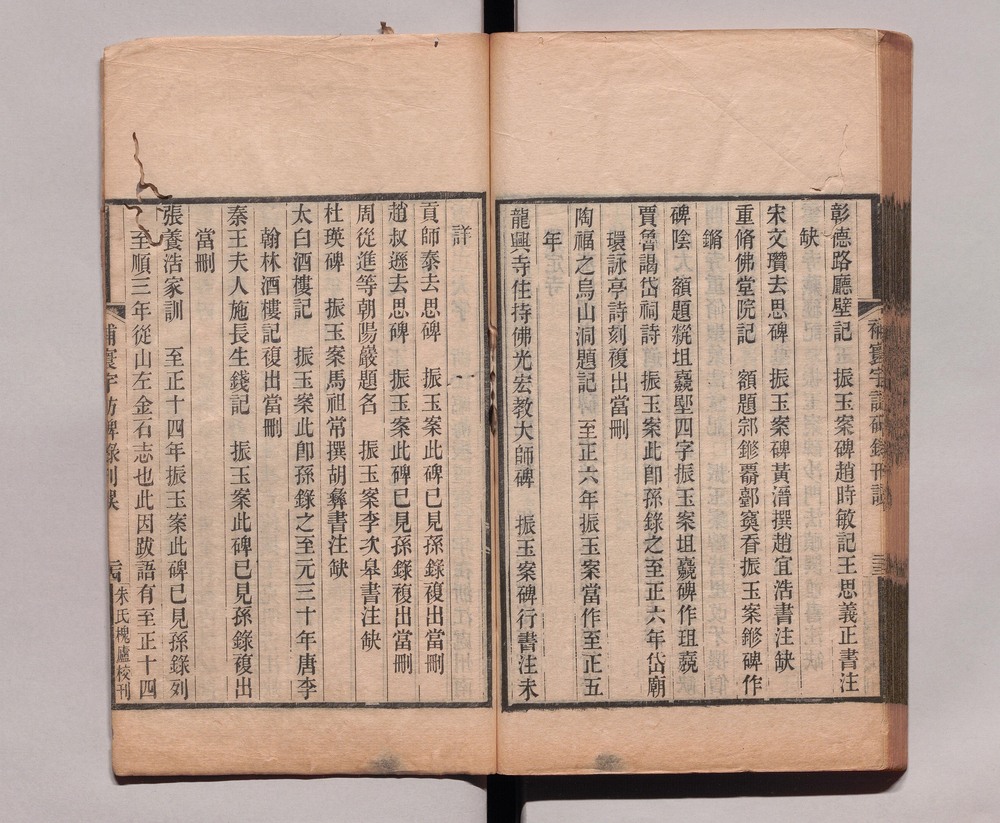 彰德路廳壁記　振玉案碑趙時敏記王思義正書注
缺
宋文瓚去思碑　振玉案碑黃溍撰趙宜浩書注缺
重脩佛堂院記　額題
振玉案
碑作
脩
碑陰　額題
四字振玉案
碑作
賈魯謁岱祠詩　振玉案此卽孫錄之至正六年岱廟
環詠亭詩刻複出當刪
陶福之烏山洞題記　至正六年振玉案當作至正五
年
龍興寺住持佛光宏教大師碑　振玉案碑行書注未
詳
貢師泰去思碑　振玉案此碑已見孫錄複出當刪
趙叔遜去思碑　振玉案此碑已見孫錄複出當刪
周從進等朝陽巖題名　振玉案李次皋書注缺
杜瑛碑　振玉案馬祖常撰胡彝書注缺
太白酒樓記　振玉案此卽孫錄之至元三十年唐李
翰林酒樓記複出當刪
秦王夫人施長生錢記　振玉案此碑已見孫錄複出
當刪
張養浩家訓　至正十四年振玉案此碑已見孫錄列
至順三年從山左金石志也此因跋語有至正十四
補寰宇訪碑錄刊誤
朱氏槐廬校刊